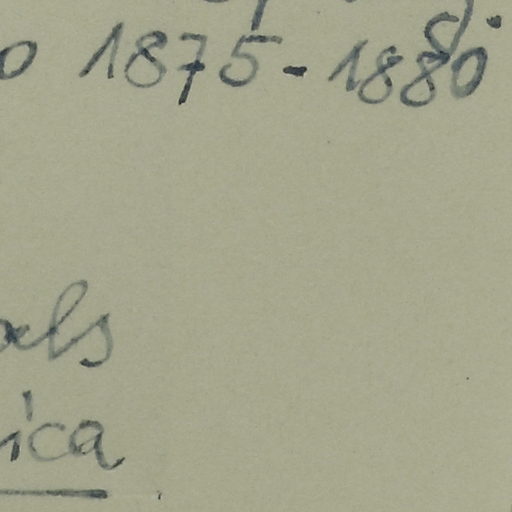 o 1875-1880
els
ica